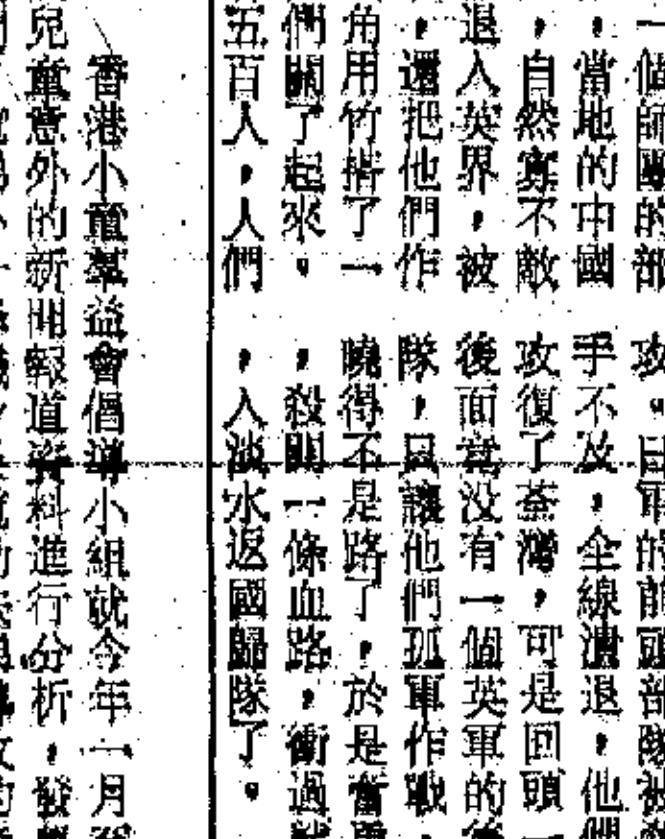 一個師團的部
，當地的中國
，自然寡不敵
退入英界，被
，還把他們作
角用竹搭了一
們關了起來。
五百人，人們
攻。日軍的前頭部隊被
手不及，全線潰退，他們
攻復了荃灣，可是回頭一
後面竟没有一個英軍的後
隊，只讓他們孤軍作戰，
曉得不是路了，於是奮
，殺開一條血路，衝過
，入淡水返國歸隊了。
香港小童羣益會倡導小組就今年一月至
兒童意外的新聞報道資料進行分析，發